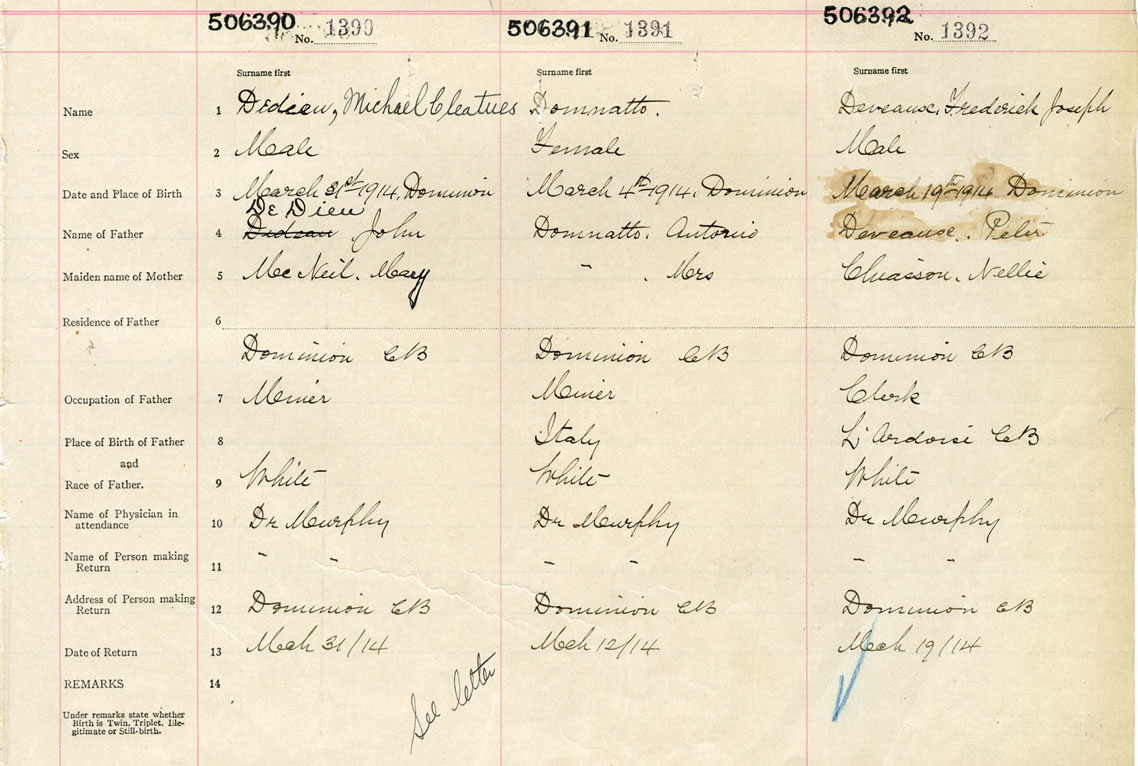 506390 No. 1390 506391 No. 1391 506392 No. 1392
Surname first Surname first Surname first
Name 1 Dedieu, Michael Cleatues Domnatto. Deveause, Frederick Joseph
Sex 2 Male Female Male
Date and Place of Birth 3 March 31st-1914, Dominion March 4th-1914, Dominion March 19th-1914 Dominion
De Dieu
Name of Father 4 John Domnatto, Antonio Deveause, Peter
Maiden name of Mother 5 McNeil. Mary " . Mrs Chiasson, Nellie
Residence of Father 6
Dominion CB Dominion CB Dominion CB
Occupation of Father 7 Miner Miner Clerk
Place of Birth of Father 8 Italy L'Ardoise CB
and
Race of Father. 9 White White White
Name of Physician in
attendance 10 Dr Murphy Dr Murphy Dr Murphy
Name of Person making
Return 11 " " " " " "
Address of Person making
Return 12 Dominion CB Dominion CB Dominion CB
Date of Return 13 Mch 31/14 Mch 12/14 Mch 19/14
REMARKS 14
See letter
Under remarks state whether
Birth is Twin, Triplet, Ille-
gitimate or Still-birth.